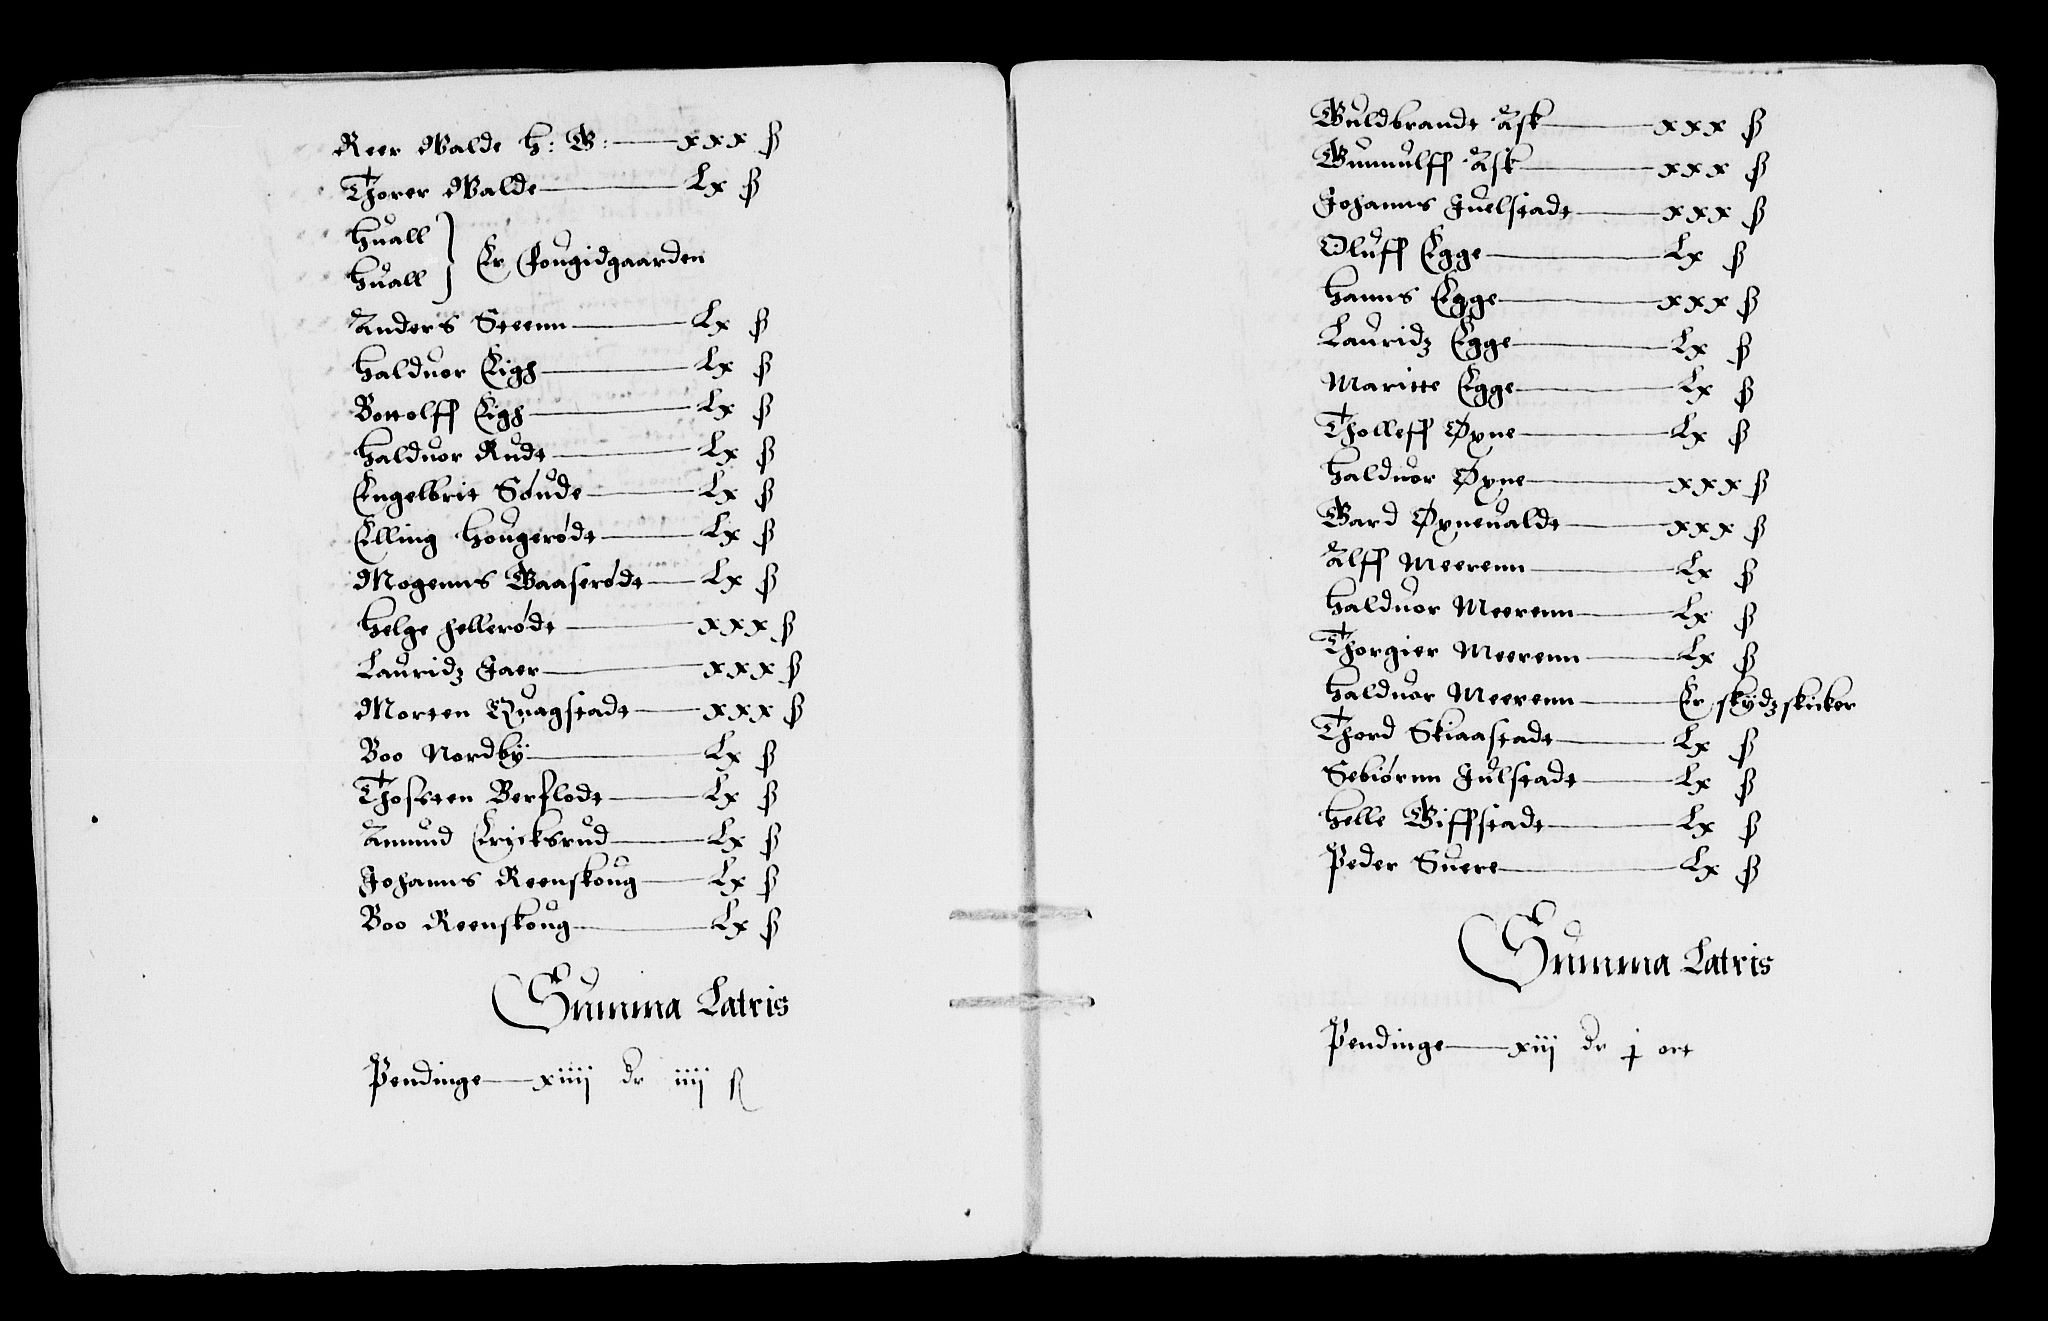 Reer Walde h: G: — xxx ß
Thorer Walde — Lx ß
Huall
Huall } Er Fougidgaarden
Anders Steenn — Lx ß
Halduor Eigh — Lx ß
Bottolff Eigh — Lx ß
Halduor Rudt — Lx ß
Engelbrit Søude — Lx ß
Elling Hougerødt — Lx ß
Mogenns Baaserødt — Lx ß
Helge Hellerødt — xxx ß
Lauridz Jaer — xxx ß
Morten Quagstadt — xxx ß
Boo Nordbÿ — Lx ß
Thosten Berflodt — Lx ß
Amund Ericksrud — Lx ß
Johanns Reenskoug — Lx ß
Boo Reenskoug — Lx ß
Summa Latris
Pendinge — xiiij dr iiij ß
Guldbrandt Ask — xxx ß
Gunnulff Ask — xxx ß
Johanns Juelstadt — xxx ß
Oluff Egge — Lx ß
Hanns Egge — xxx ß
Lauridz Egge — Lx ß
Maritte Egge — Lx ß
Tholleff Øyne — Lx ß
Halduor Øyne — xxx ß
Gard Øyneualdt — xxx ß
Alff Meerenn — Lx ß
Halduor Meerenn — Lx ß
Thorgier Meerenn — Lx ß
Halduor Meerenn — Er skÿdzskicker
Thord Skiaastadt — Lx ß
Sebiørnn Julstadt — Lx ß
Helle Giffstadt — Lx ß
Peder Suere — Lx ß
Summa Latris
Pendinge — xiij dr j ort